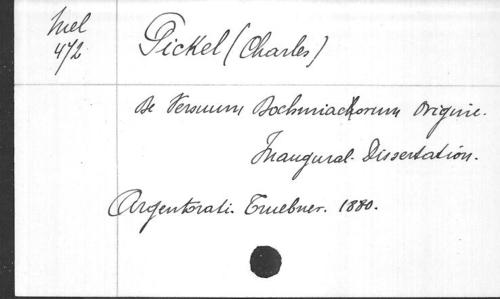 Mel
472
Pickel (Charles)
De Versuum Dochmiackorum Origine.
Inaugural-Dissertation.
Argentorati. Truebner. 1880.